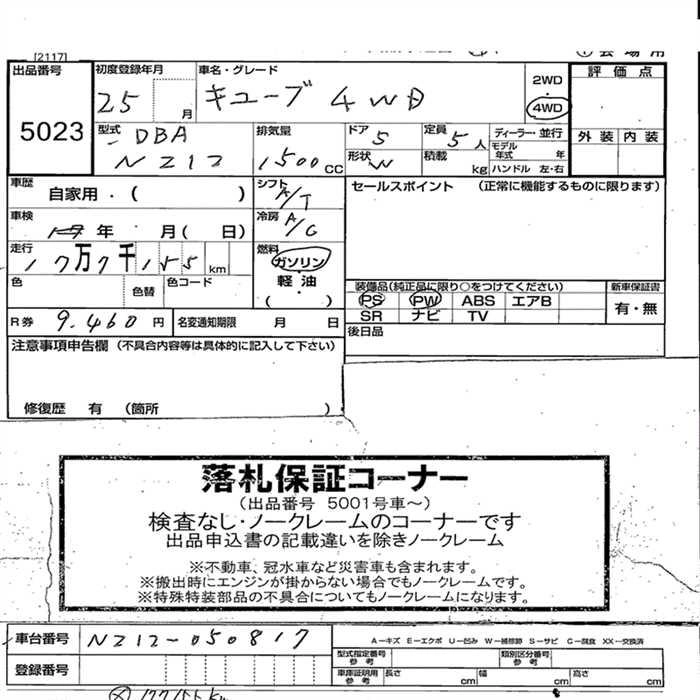 [2117]
出品番号 初度登録年月 車名・グレード 2WD 評価点
5023 25 月 キューブ 4WD 4WD 外装 内装
型式 DBA 排気量 ドア 5 定員 5人 ディーラー・並行
NZ12 1500cc 形状 W 積載 kg モデル年式 年
ハンドル 左・右
車歴 自家用・( ) シフト A/T セールスポイント (正常に機能するものに限ります)
車検 年 月( 日) 冷房 A/C
走行 17万7千155km 燃料 ガソリン
色 色替 色コード 軽油 ( ) 装備品(純正品に限り○をつけてください) 新車保証書
PS PW ABS エアB 有・無
SR ナビ TV
R券 9.460円 名変通知期限 月 日 後日品
注意事項申告欄 (不具合内容等は具体的に記入して下さい)
修復歴 有 (箇所 )
落札保証コーナー
(出品番号 5001号車~)
検査なし・ノークレームのコーナーです
出品申込書の記載違いを除きノークレーム
※不動車、冠水車など災害車も含まれます。
※搬出時にエンジンが掛からない場合でもノークレームです。
※特殊特装部品の不具合についてもノークレームになります。
車台番号 NZ12-050817 A-キズ E-エクボ U-凹み W-補修跡 S-サビ C-腐食 XX-交換済
型式指定番号 参考 類別区分番号 参考
登録番号 車庫証明用 参考 長さ cm 幅 cm 高さ cm